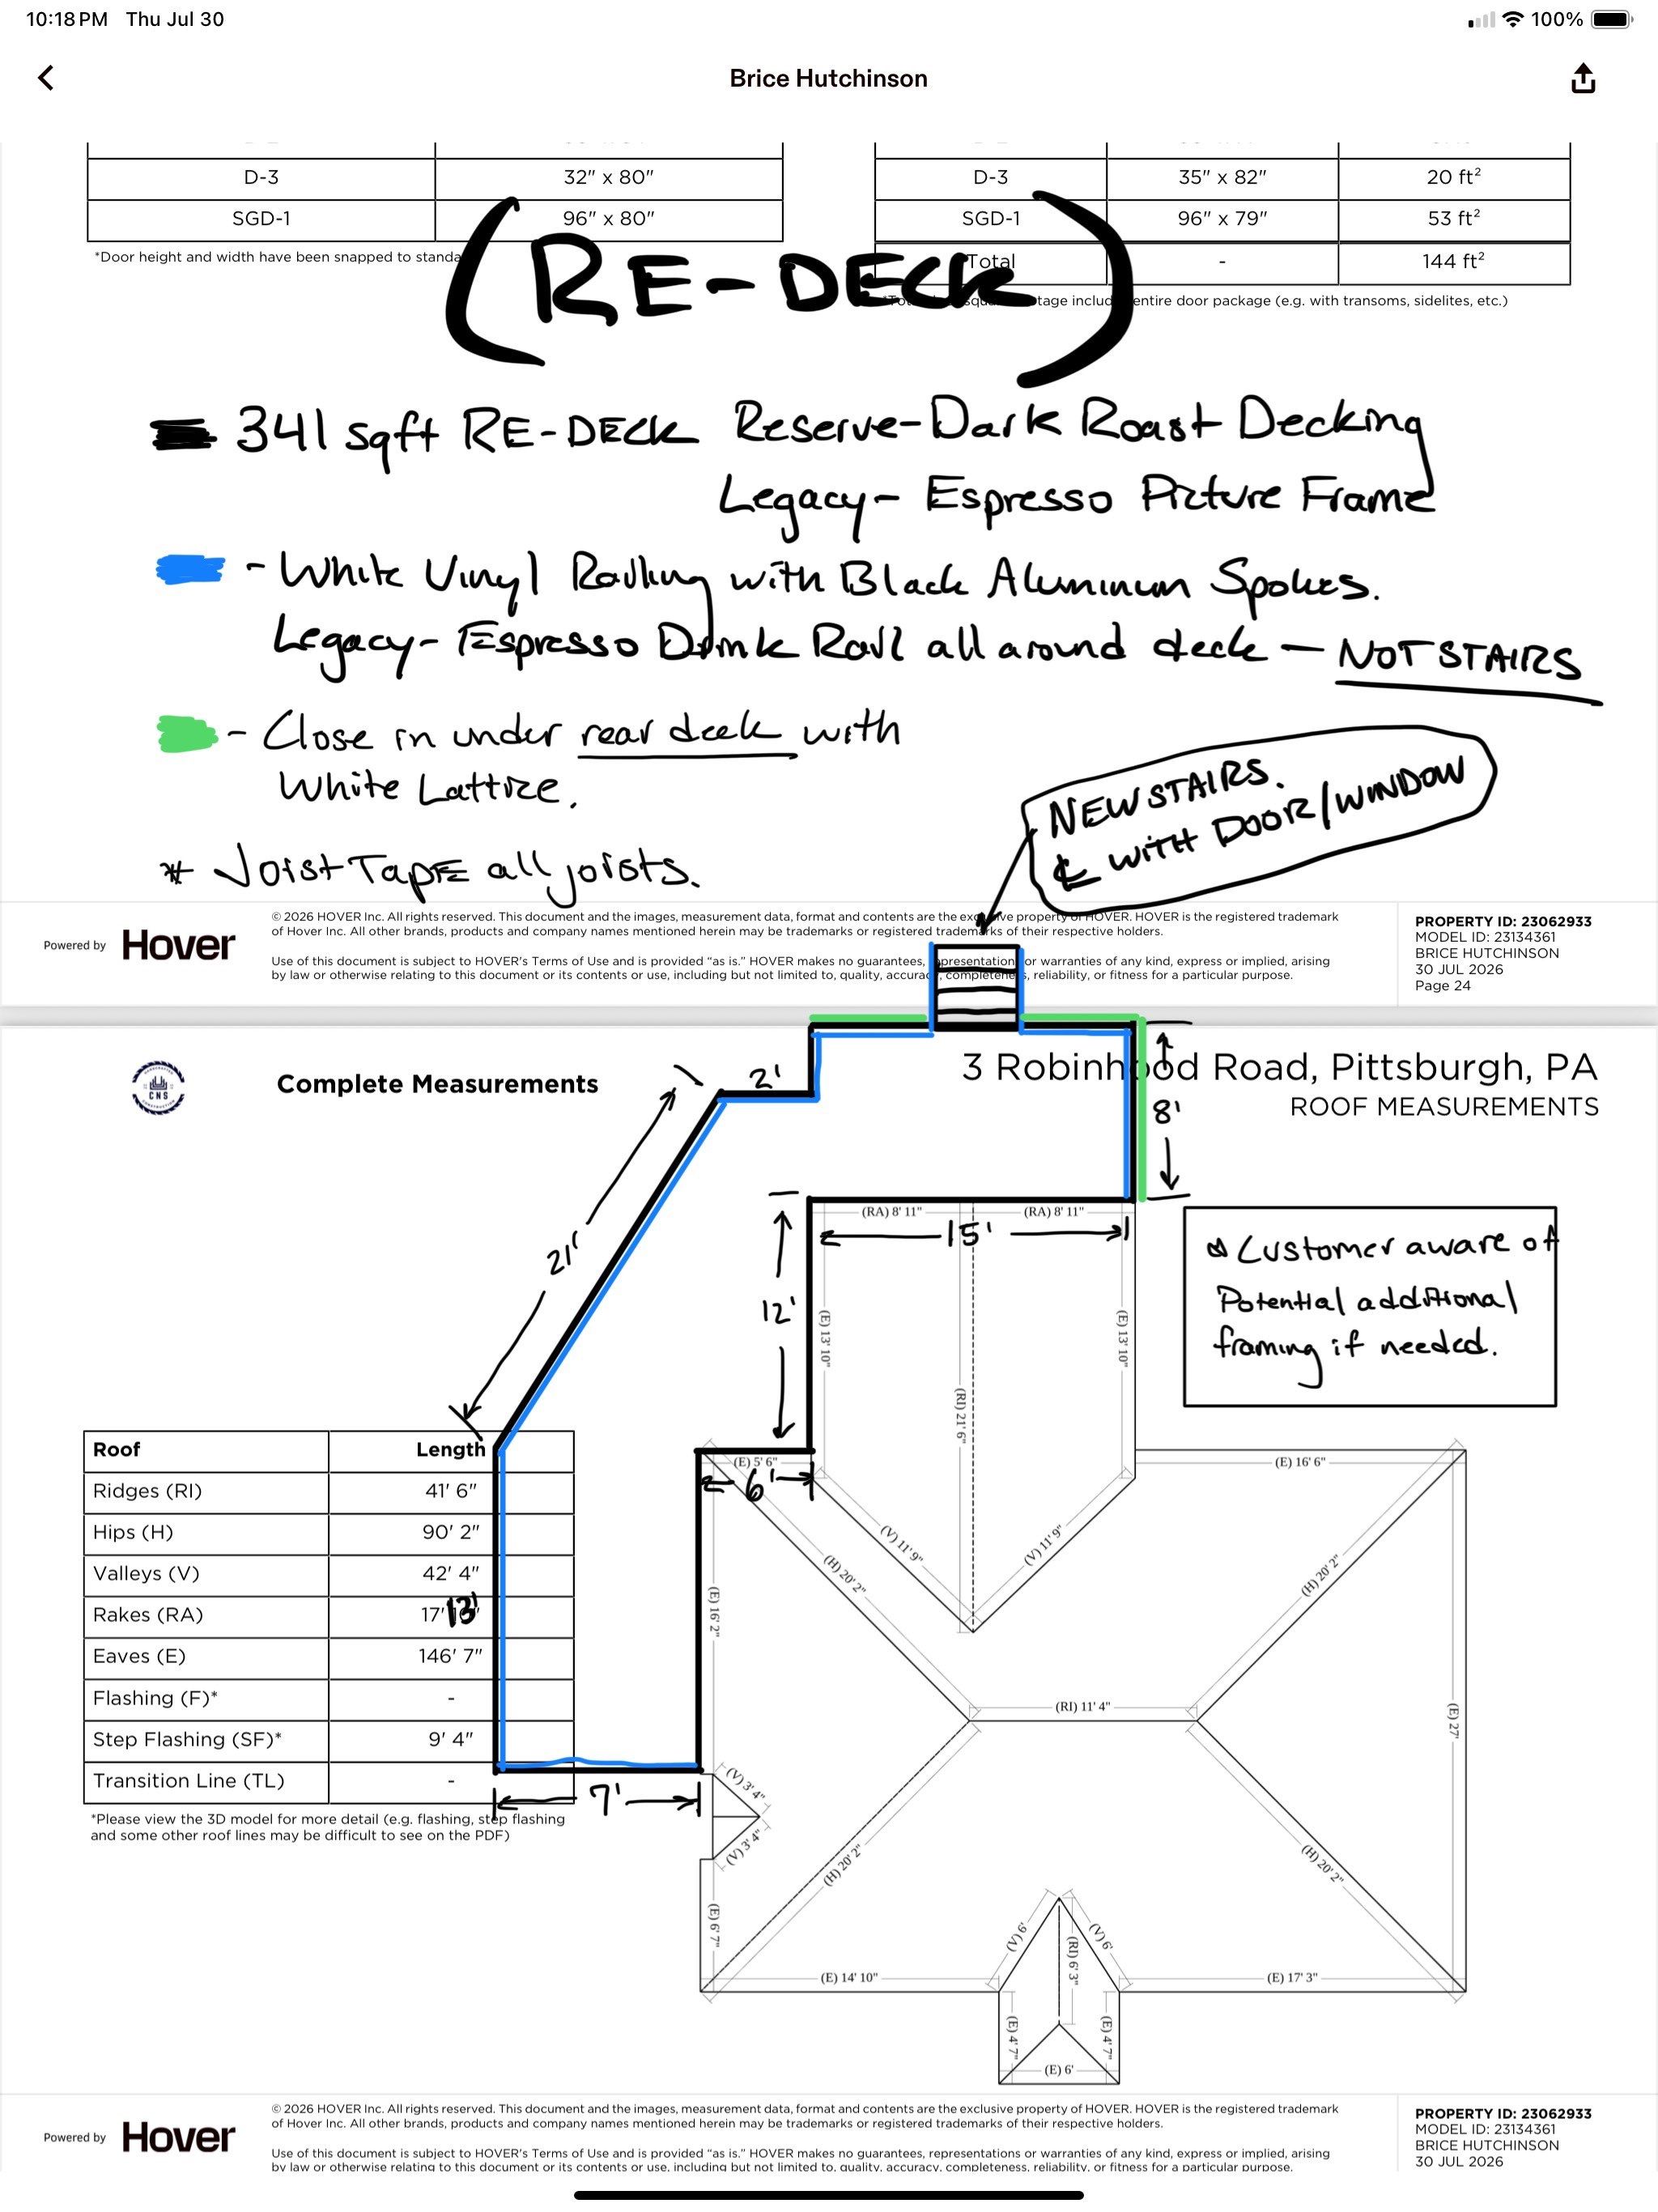 10:18 PM Thu Jul 30
100%
Brice Hutchinson
D-3 32" x 80"
SGD-1 96" x 80"
*Door height and width have been snapped to standa
D-3 35" x 82" 20 ft²
SGD-1 96" x 79" 53 ft²
Total - 144 ft²
entire door package (e.g. with transoms, sidelites, etc.)
(RE-DECK)
341 sqft RE-DECK Reserve-Dark Roast Decking
Legacy- Espresso Picture Frame
- White Vinyl Railing with Black Aluminum Spokes.
Legacy- Espresso Drink Rail all around deck - NOT STAIRS
- Close in under rear deck with
White Lattice.
* Joist Tape all joists.
NEW STAIRS.
℄ with DOOR/WINDOW
Powered by Hover
© 2026 HOVER Inc. All rights reserved. This document and the images, measurement data, format and contents are the exclusive property of HOVER. HOVER is the registered trademark
of Hover Inc. All other brands, products and company names mentioned herein may be trademarks or registered trademarks of their respective holders.
Use of this document is subject to HOVER's Terms of Use and is provided "as is." HOVER makes no guarantees, representations or warranties of any kind, express or implied, arising
by law or otherwise relating to this document or its contents or use, including but not limited to, quality, accuracy, completeness, reliability, or fitness for a particular purpose.
PROPERTY ID: 23062933
MODEL ID: 23134361
BRICE HUTCHINSON
30 JUL 2026
Page 24
CNS
Complete Measurements
3 Robinhood Road, Pittsburgh, PA
ROOF MEASUREMENTS
2'
8'
21'
12'
(RA) 8' 11"
(RA) 8' 11"
15'
(E) 13' 10"
(E) 13' 10"
(RI) 21' 6"
Customer aware of
Potential additional
framing if needed.
Roof Length
Ridges (RI) 41' 6"
Hips (H) 90' 2"
Valleys (V) 42' 4"
Rakes (RA) 17'
13'
Eaves (E) 146' 7"
Flashing (F)* -
Step Flashing (SF)* 9' 4"
Transition Line (TL) -
*Please view the 3D model for more detail (e.g. flashing, step flashing
and some other roof lines may be difficult to see on the PDF)
(E) 5' 6"
6'
(E) 16' 6"
(V) 11' 9"
(V) 11' 9"
(H) 20' 2"
(H) 20' 2"
(E) 16' 2"
(RI) 11' 4"
(E) 27'
7'
(V) 3' 4"
(V) 3' 4"
(H) 20' 2"
(H) 20' 2"
(E) 6' 7"
(V) 6'
(V) 6'
(RI) 6' 3"
(E) 14' 10"
(E) 17' 3"
(E) 4' 7"
(E) 4' 7"
(E) 6'
Powered by Hover
© 2026 HOVER Inc. All rights reserved. This document and the images, measurement data, format and contents are the exclusive property of HOVER. HOVER is the registered trademark
of Hover Inc. All other brands, products and company names mentioned herein may be trademarks or registered trademarks of their respective holders.
Use of this document is subject to HOVER's Terms of Use and is provided "as is." HOVER makes no guarantees, representations or warranties of any kind, express or implied, arising
by law or otherwise relating to this document or its contents or use, including but not limited to, quality, accuracy, completeness, reliability, or fitness for a particular purpose.
PROPERTY ID: 23062933
MODEL ID: 23134361
BRICE HUTCHINSON
30 JUL 2026